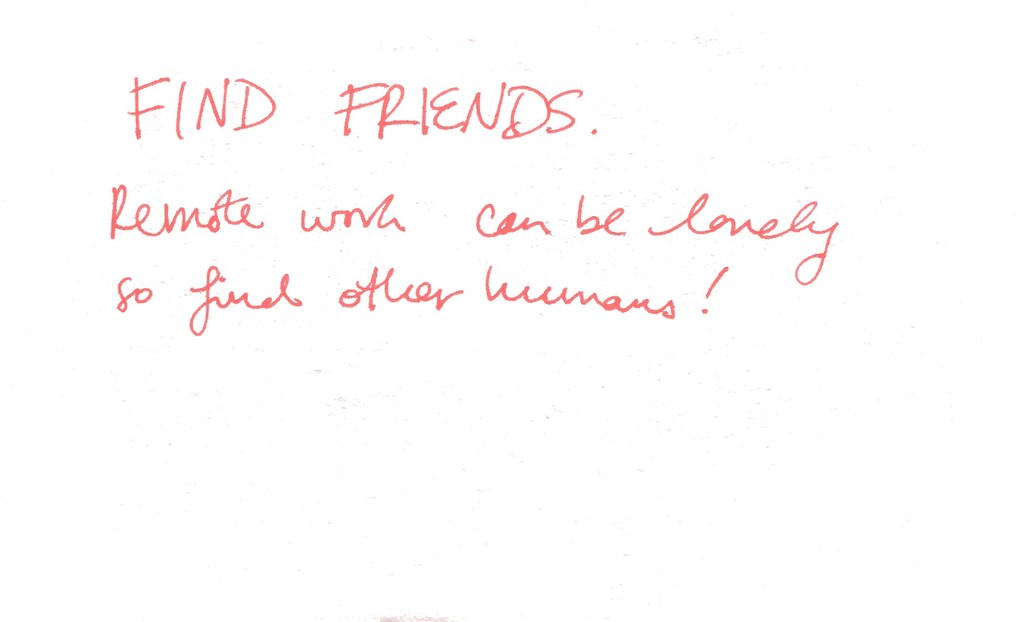 FIND FRIENDS.
Remote work can be lonely
so find other humans!